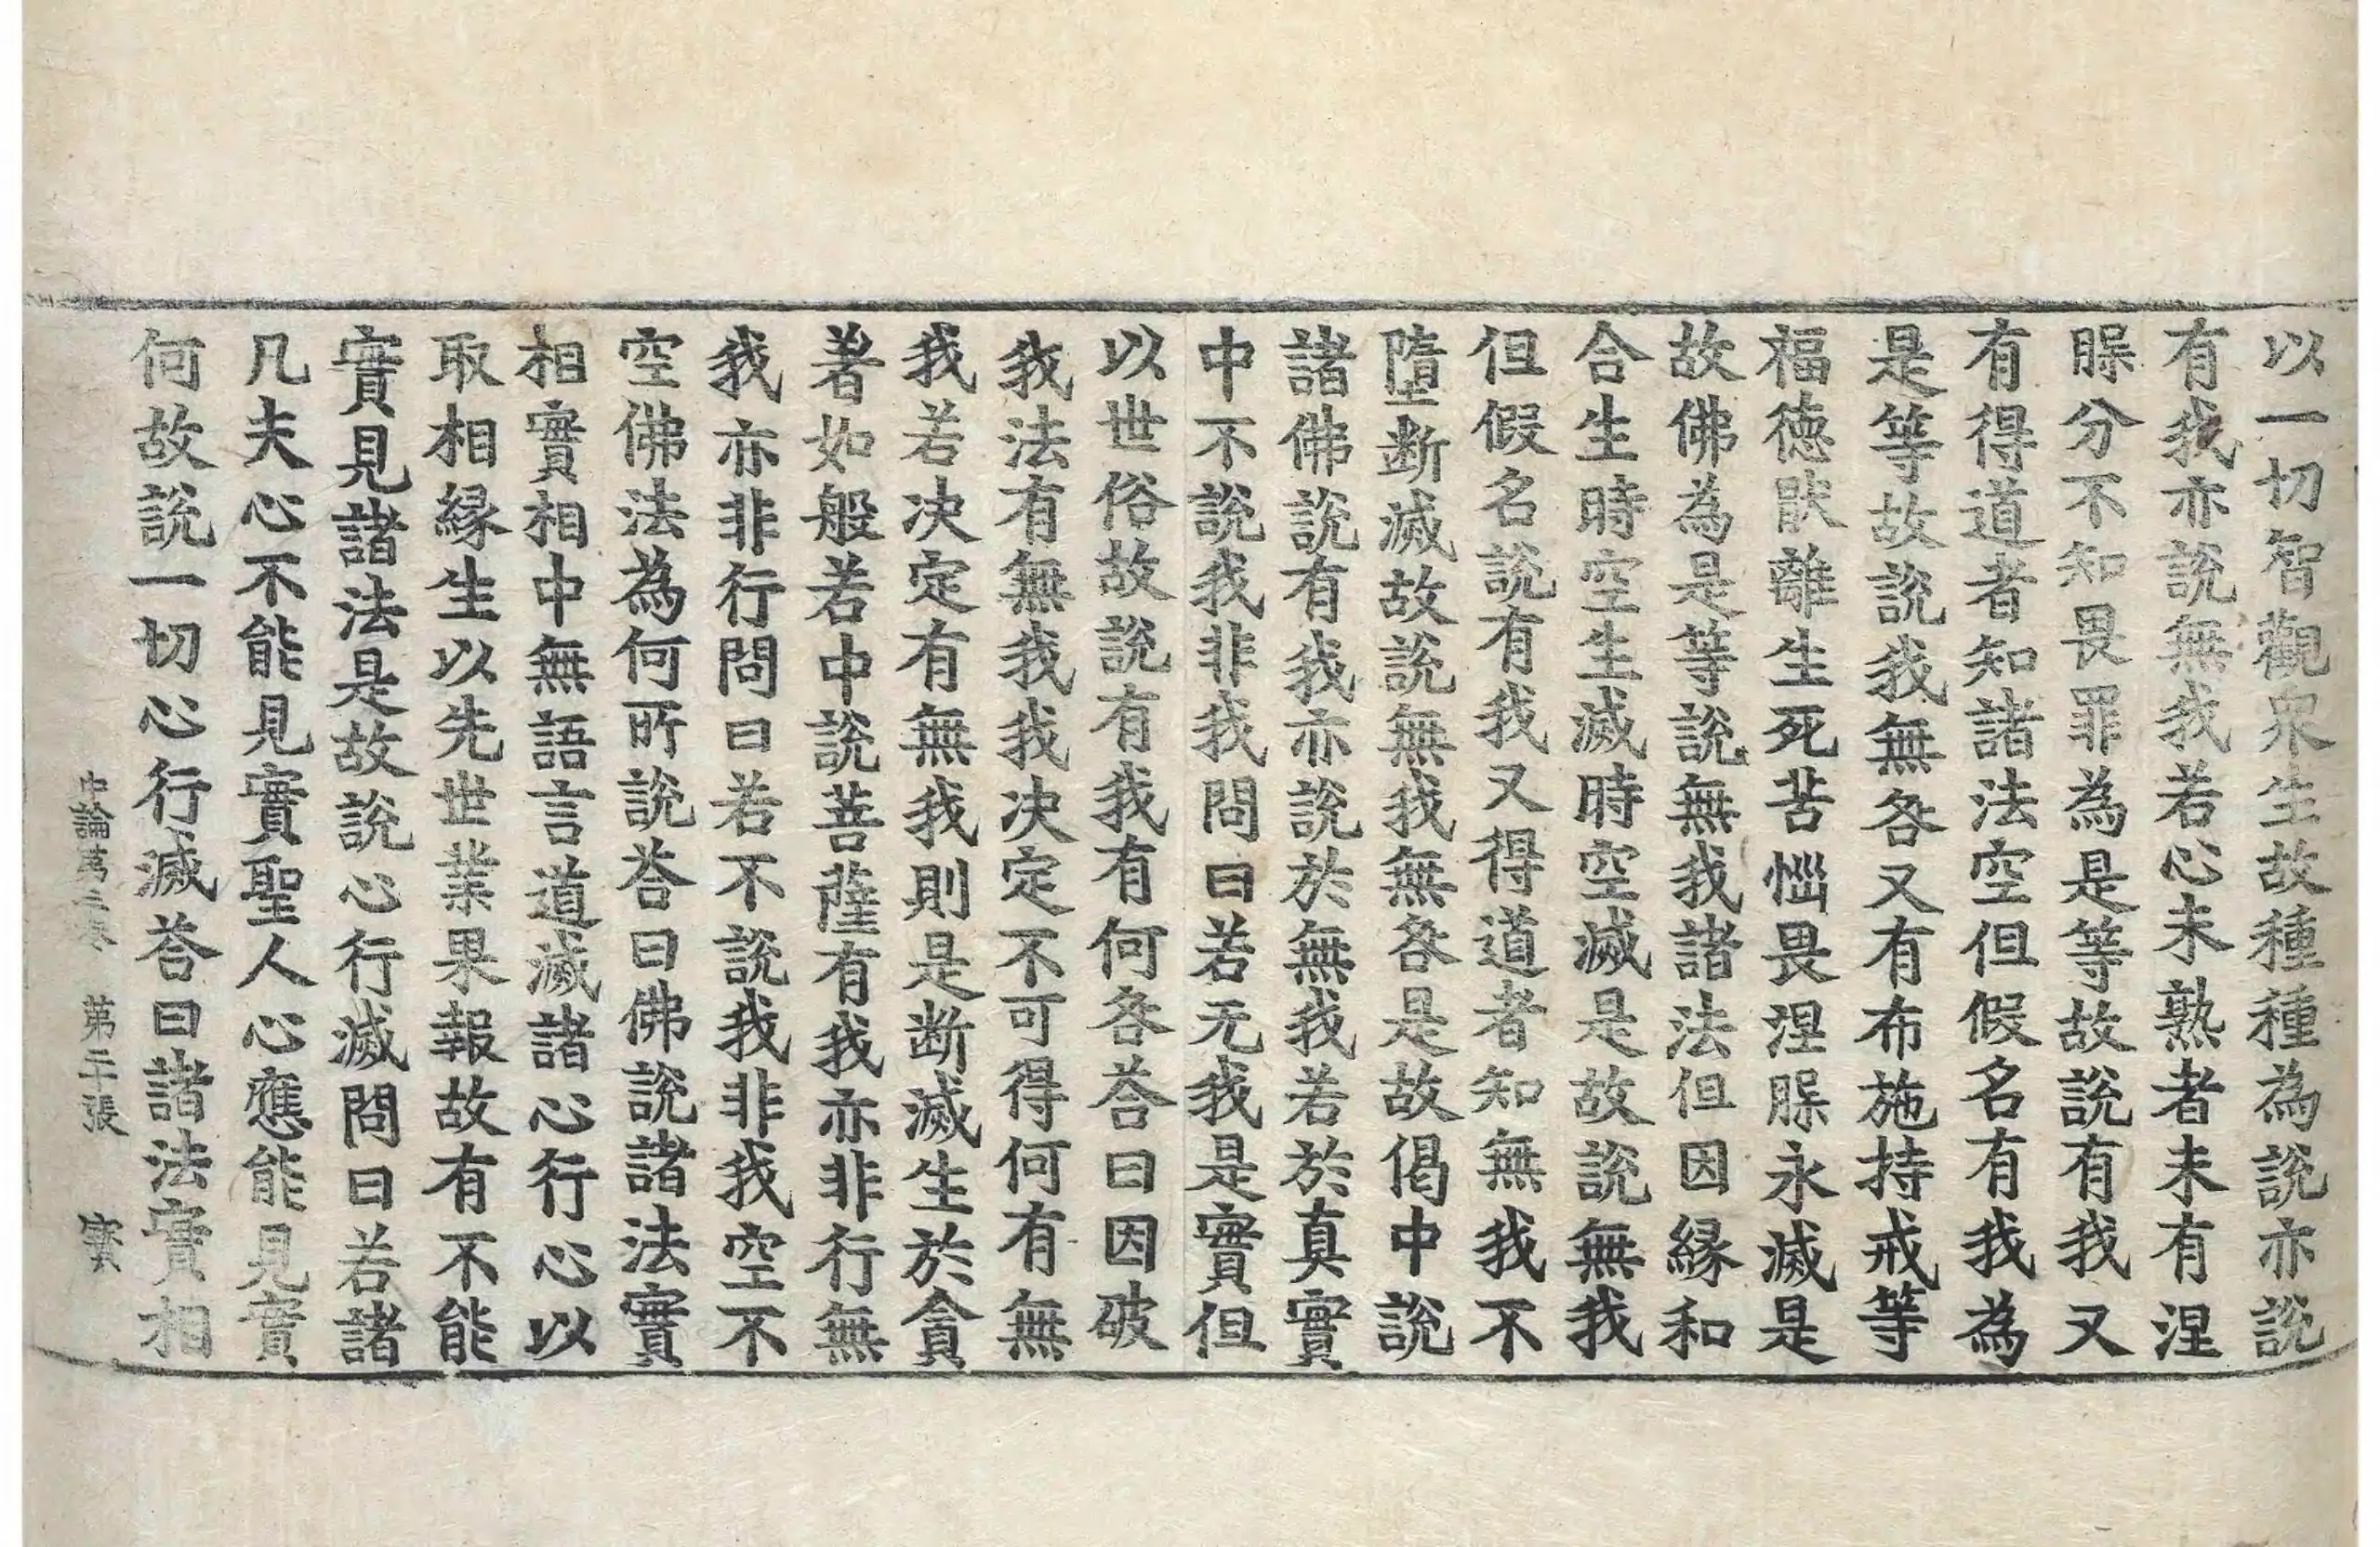 以一切智觀衆生故種種為說亦說
有我亦說無我若心未熟者未有涅
腺分不知畏罪為是等故說有我又
有得道者知諸法空但假名有我為
是等故說我無咎又有布施持戒等
福徳猒離生死苦惱畏涅腺永滅是
故佛為是等說無我諸法但因緣和
合生時空生滅時空滅是故說無我
但假名說有我又得道者知無我不
墮斷滅故說無我無咎是故偈中說
諸佛說有我亦說於無我若於真實
中不說我非我問曰若无我是實但
以世俗故說有我有何咎荅曰因破
我法有無我我决定不可得何有無
我若决定有無我則是斷滅生於貪
著如般若中說菩薩有我亦非行無
我亦非行問曰若不說我非我空不
空佛法為何所說荅曰佛說諸法實
相實相中無語言道滅諸心行心以
取相緣生以先世業果報故有不能
實見諸法是故說心行滅問曰若諸
凡夫心不能見實聖人心應能見實
何故說一切心行滅荅曰諸法實相
中論第三卷　第二十張